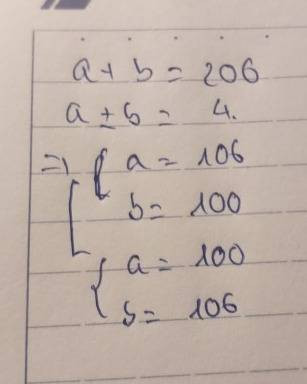 a + b = 206
a ± b = 4.
=> { a = 106
b = 100
{ a = 100
b = 106